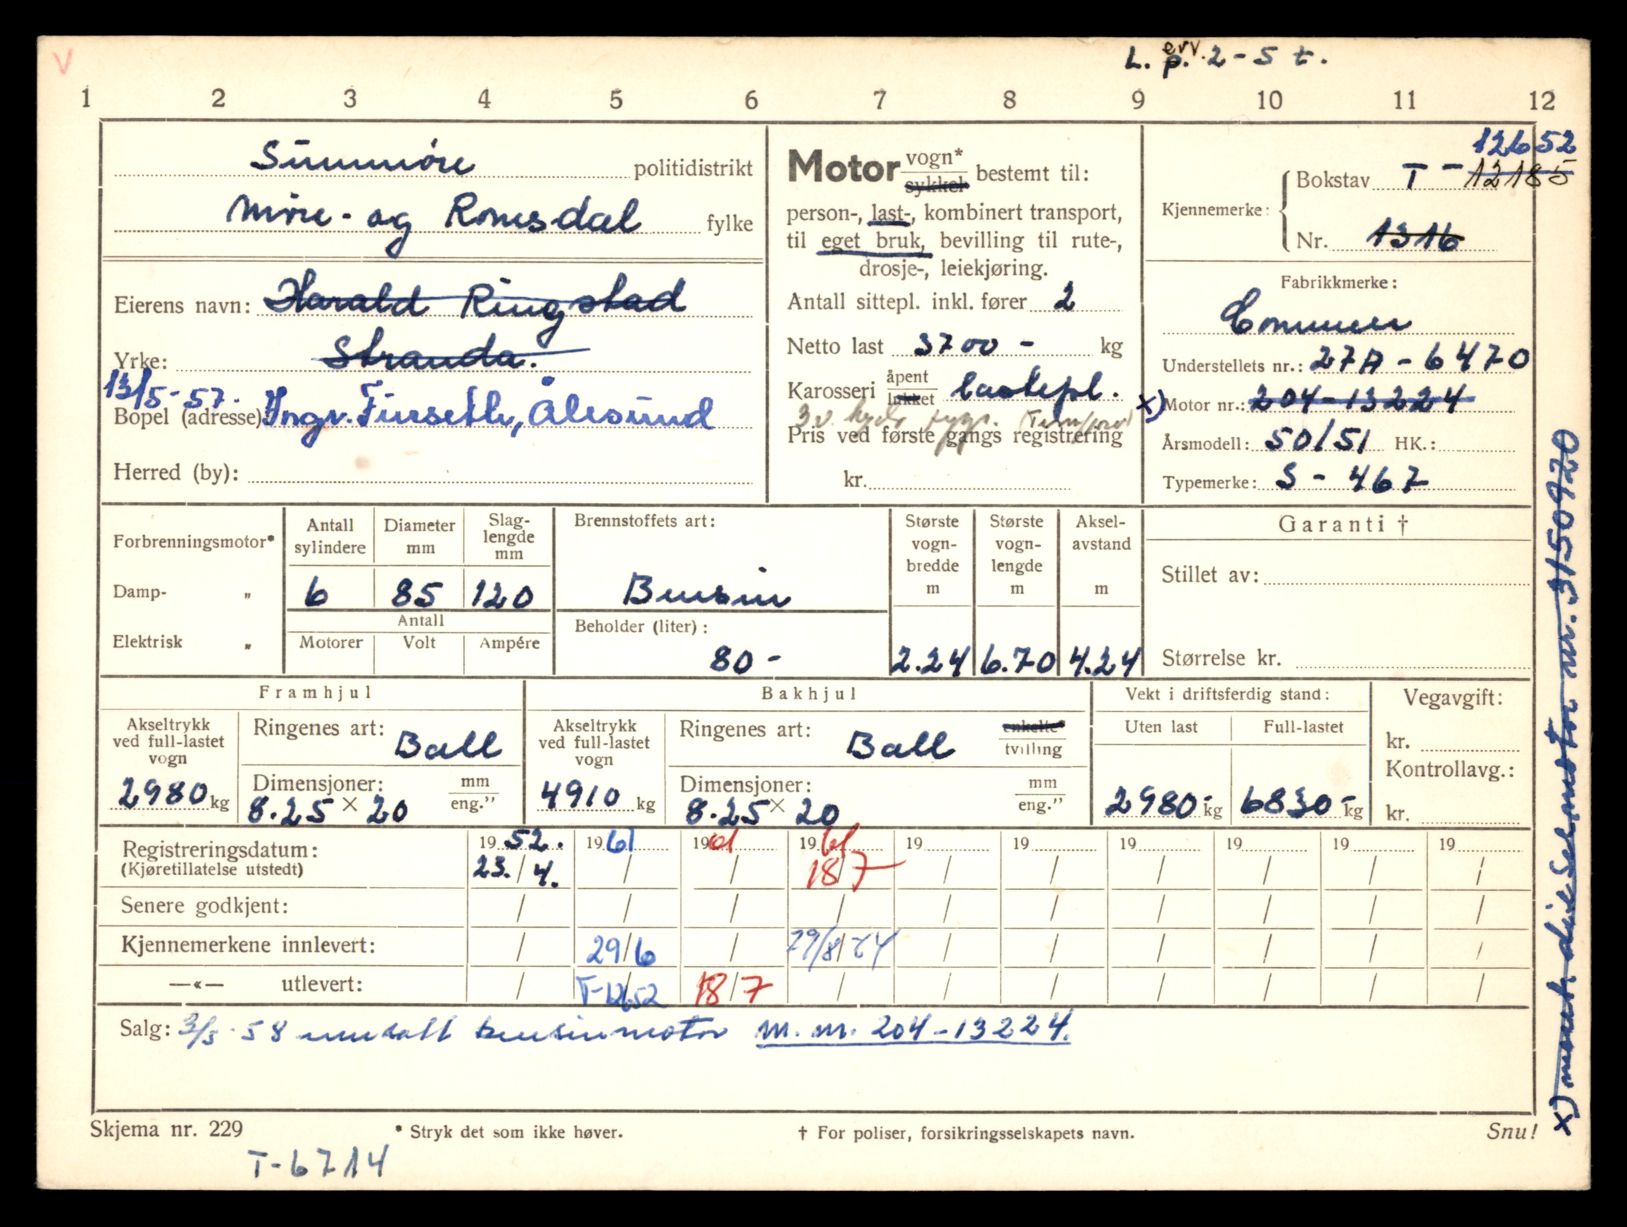 V
L. p. erv. 2-5 t.
1 2 3 4 5 6 7 8 9 10 11 12
Sunnmøre politidistrikt
Møre- og Romsdal fylke
Eierens navn: Harald Ringstad
Yrke: Stranda.
13/5-57.
Bopel (adresse) Yngv. Finseth, Ålesund
Herred (by):
Motor vogn* sykkel bestemt til:
person-, last-, kombinert transport,
til eget bruk, bevilling til rute-,
drosje-, leiekjøring.
Antall sittepl. inkl. fører 2
Netto last 3700 - kg
Karosseri åpent lukket lastepl.
Pris ved første gangs registrering
kr.
12652
Kjennemerke: Bokstav T - 12185
Nr. 1316
Fabrikkmerke:
Commer
Understellets nr.: 27A - 6470
x) Motor nr.: 204-13224
Årsmodell: 50/51 HK.:
Typemerke: S - 467
Forbrenningsmotor*
Damp- "
Elektrisk "
Antall sylindere Diameter mm Slag-lengde mm
6 85 120
Antall
Motorer Volt Ampére
Brennstoffets art:
Bensin
Beholder (liter):
80 -
Største vogn-bredde m Største vogn-lengde m Aksel-avstand m
2.24 6.70 4.24
Garanti †
Stillet av:
Størrelse kr.
Framhjul
Akseltrykk ved full-lastet vogn
2980 kg
Ringenes art: Ball
Dimensjoner: mm eng."
8.25 × 20
Bakhjul
Akseltrykk ved full-lastet vogn
4910 kg
Ringenes art: Ball enkelte* tvilling
Dimensjoner: mm eng."
8.25 × 20
Vekt i driftsferdig stand:
Uten last Full-lastet
2980- kg 6830- kg
Vegavgift:
kr.
Kontrollavg.:
kr.
Registreringsdatum: 19 52. 19 61 19 61 19 61 19 19 19 19 19 19
(Kjøretillatelse utstedt) 23. / 4. / / 18/7 / / / / / /
Senere godkjent: / / / / / / / / / /
Kjennemerkene innlevert: / 29/6 / 29/8/64 / / / / / /
—«— utlevert: / T-12652 18/7 / / / / / / /
Salg: 3/5-58 innsatt bensinmotor m. nr. 204-13224.
Skjema nr. 229
* Stryk det som ikke høver.
† For poliser, forsikringsselskapets navn.
Snu!
T-6714
x) mont. dieselmotor nr. 3150920